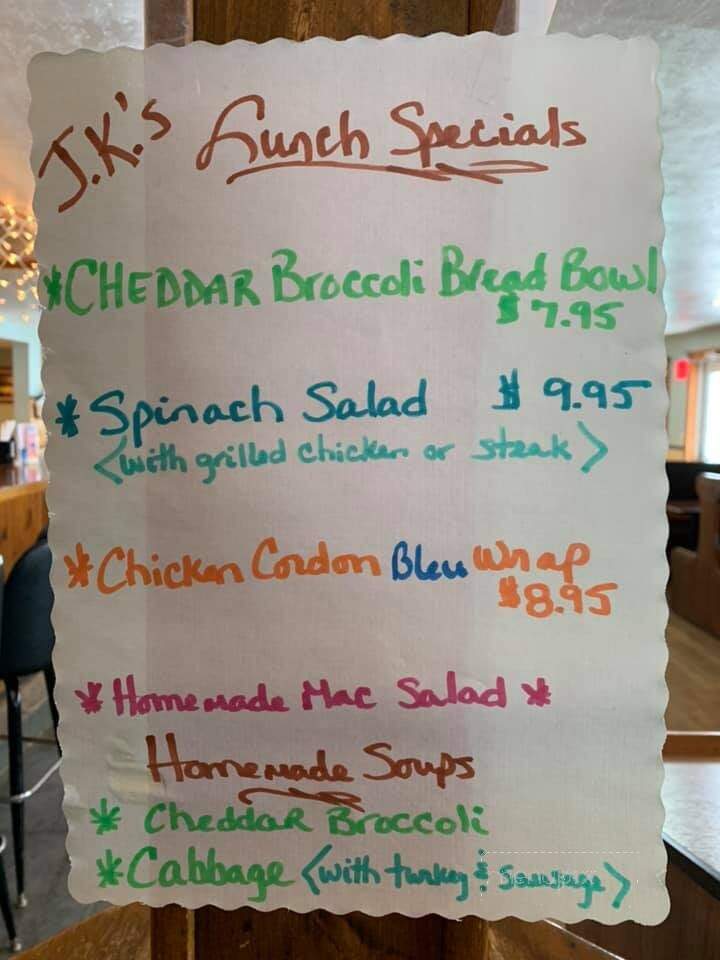 J.K.'s Lunch Specials
*CHEDDAR Broccoli Bread Bowl
$7.95
*Spinach Salad $9.95
<with grilled chicken or steak>
*Chicken Cordon Bleu Wrap
$8.95
*Homemade Mac Salad*
Homemade Soups
* Cheddar Broccoli
*Cabbage <with turkey & Sausage>